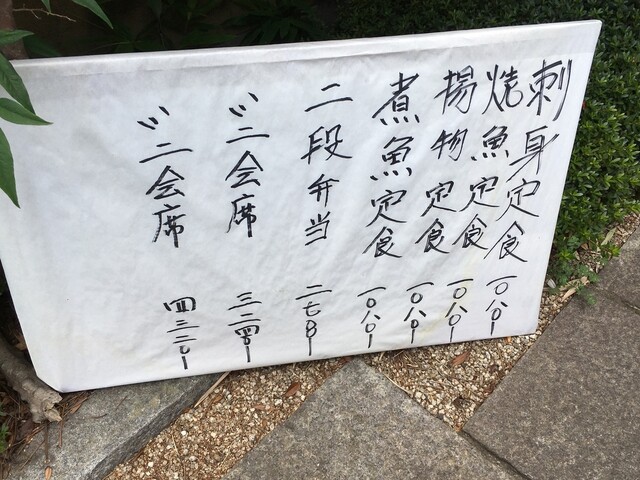 刺身定食 一〇八〇ー
焼魚定食 一〇八〇ー
揚物定食 一〇八〇ー
煮魚定食 一〇八〇ー
二段弁当 二七〇八ー
ミニ会席 三二四〇ー
ミニ会席 四三二〇ー